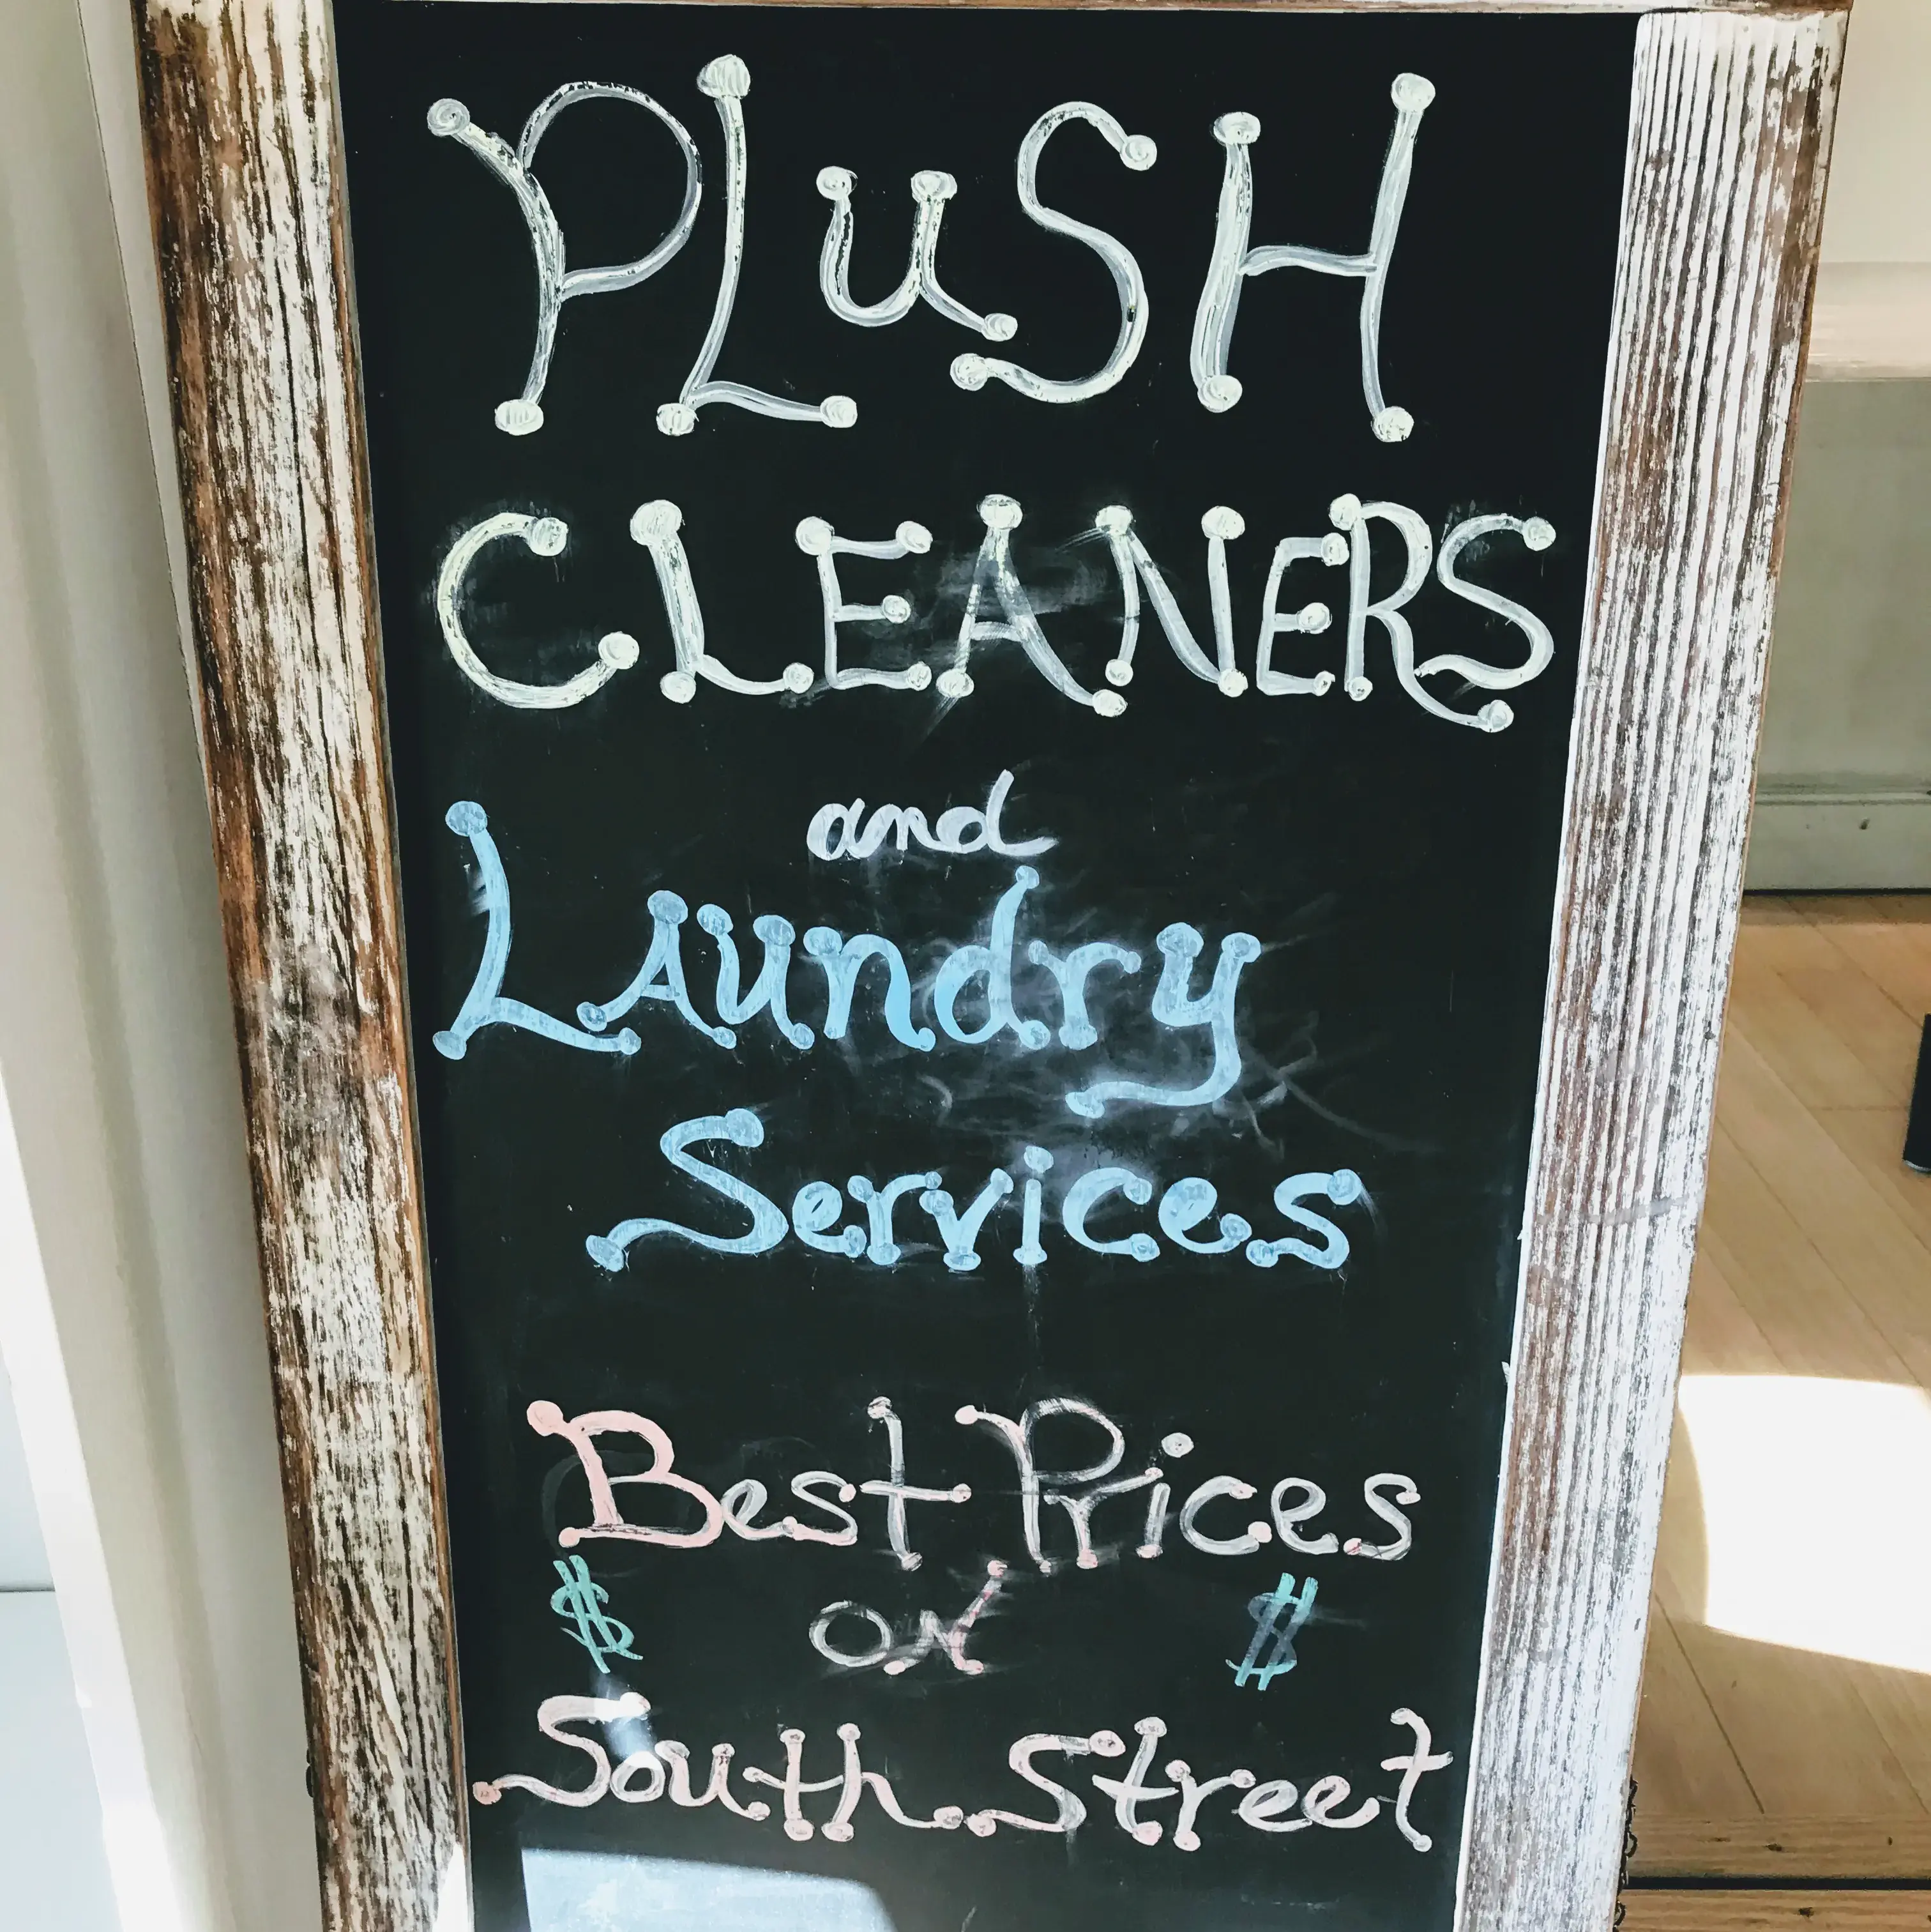 PLuSH
CLEANERS
and
LAundry
Services
Best Prices
$ ON $
South Street